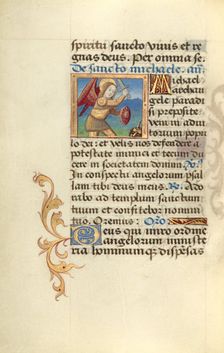 spiritu sancto vivis et re
gnas deus. Per omnia se.
De sancto michaele. an̄.
Michael
archan
gele paradi
si preposite
veni in adiu
torium popu
lo dei: et velis nos defendere a
potestate inimici et tecum du
cere in societatem domini. V̄.
In conspectu angelorum psal
lam tibi deus meus. R̄. Ado
rabo ad templum sanctum
tuum et confitebor nomini
tuo. Oremus: Orō
Deus qui miro ordine
angelorum ministe
ria hominumque dispensas